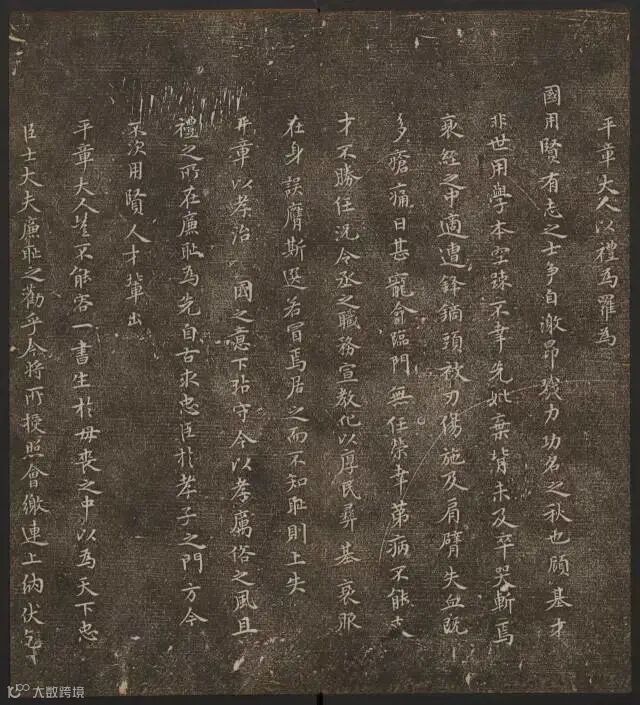 平章大人以禮為羅為
國用賢有志之士爭自激昂戮力功名之秋也顧基才
非世用學本空疎不幸先妣棄背未及卒哭斬焉
衰絰之中適遭鋒鏑頭被刃傷施及肩臂失血既
多瘡痛日甚寵命臨門無任榮幸第病不能支
才不勝任況令丞之職務宣教化以厚民彝基衰服
在身誤膺斯選若冒焉居之而不知恥則上失
平章以孝治 國之意下玷守令以孝厲俗之風且
禮之所在廉恥為先自古求忠臣於孝子之門方今
不次用賢人才輩出
平章大人豈不能容一書生於母喪之中以為天下忠
臣士大夫廉恥之勸乎今將所授照會繳連上納伏乞
大数跨境